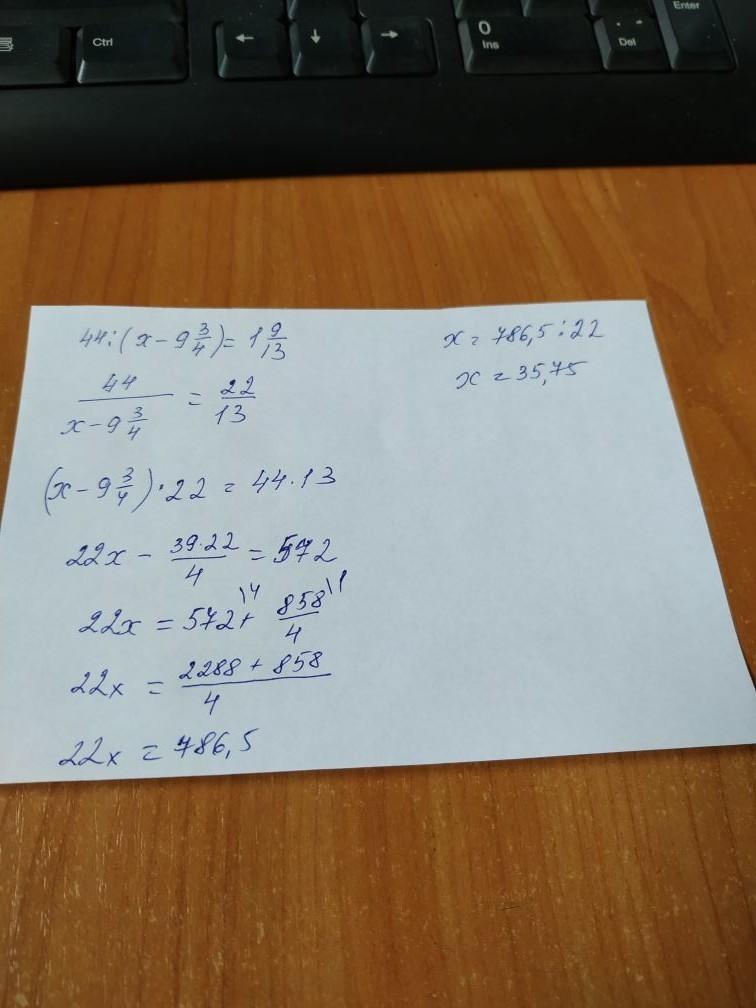 Ctrl
←
↓
→
0
Ins
.
Del
Enter
44:(x-9 3/4)=1 9/13
44/(x-9 3/4) = 22/13
(x-9 3/4)·22 = 44·13
22x - 39·22/4 = 572
22x = 572\4 + 858\1/4
22x = 2288+858/4
22x = 786,5
x = 786,5:22
x = 35,75